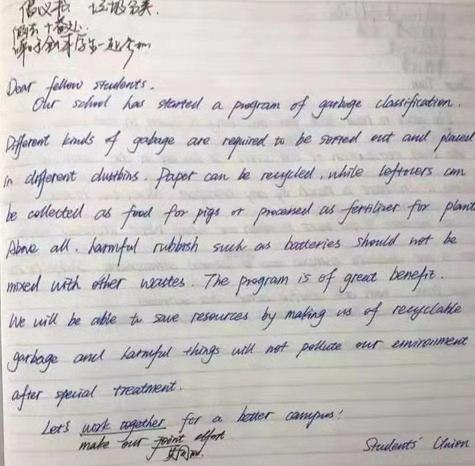 倡议书 垃圾分类.
Dear fellow students.
Our school has started a program of garbage classification.
Different kinds of gabage are required to be sorted out and placed
in different dustbins. Paper can be recycled, while leftovers can
be collected as food for pigs or processed as fertilizer for plant
Above all, harmful rubbish such as batteries should not be
mixed with other wastes. The program is of great benefit.
We will be able to save resources by making us of recyclable
garbage and harmful things will not pollute our environment
after special treatment.
Let's work together for a better campus!
make our joint effort
共同的
Students' Union